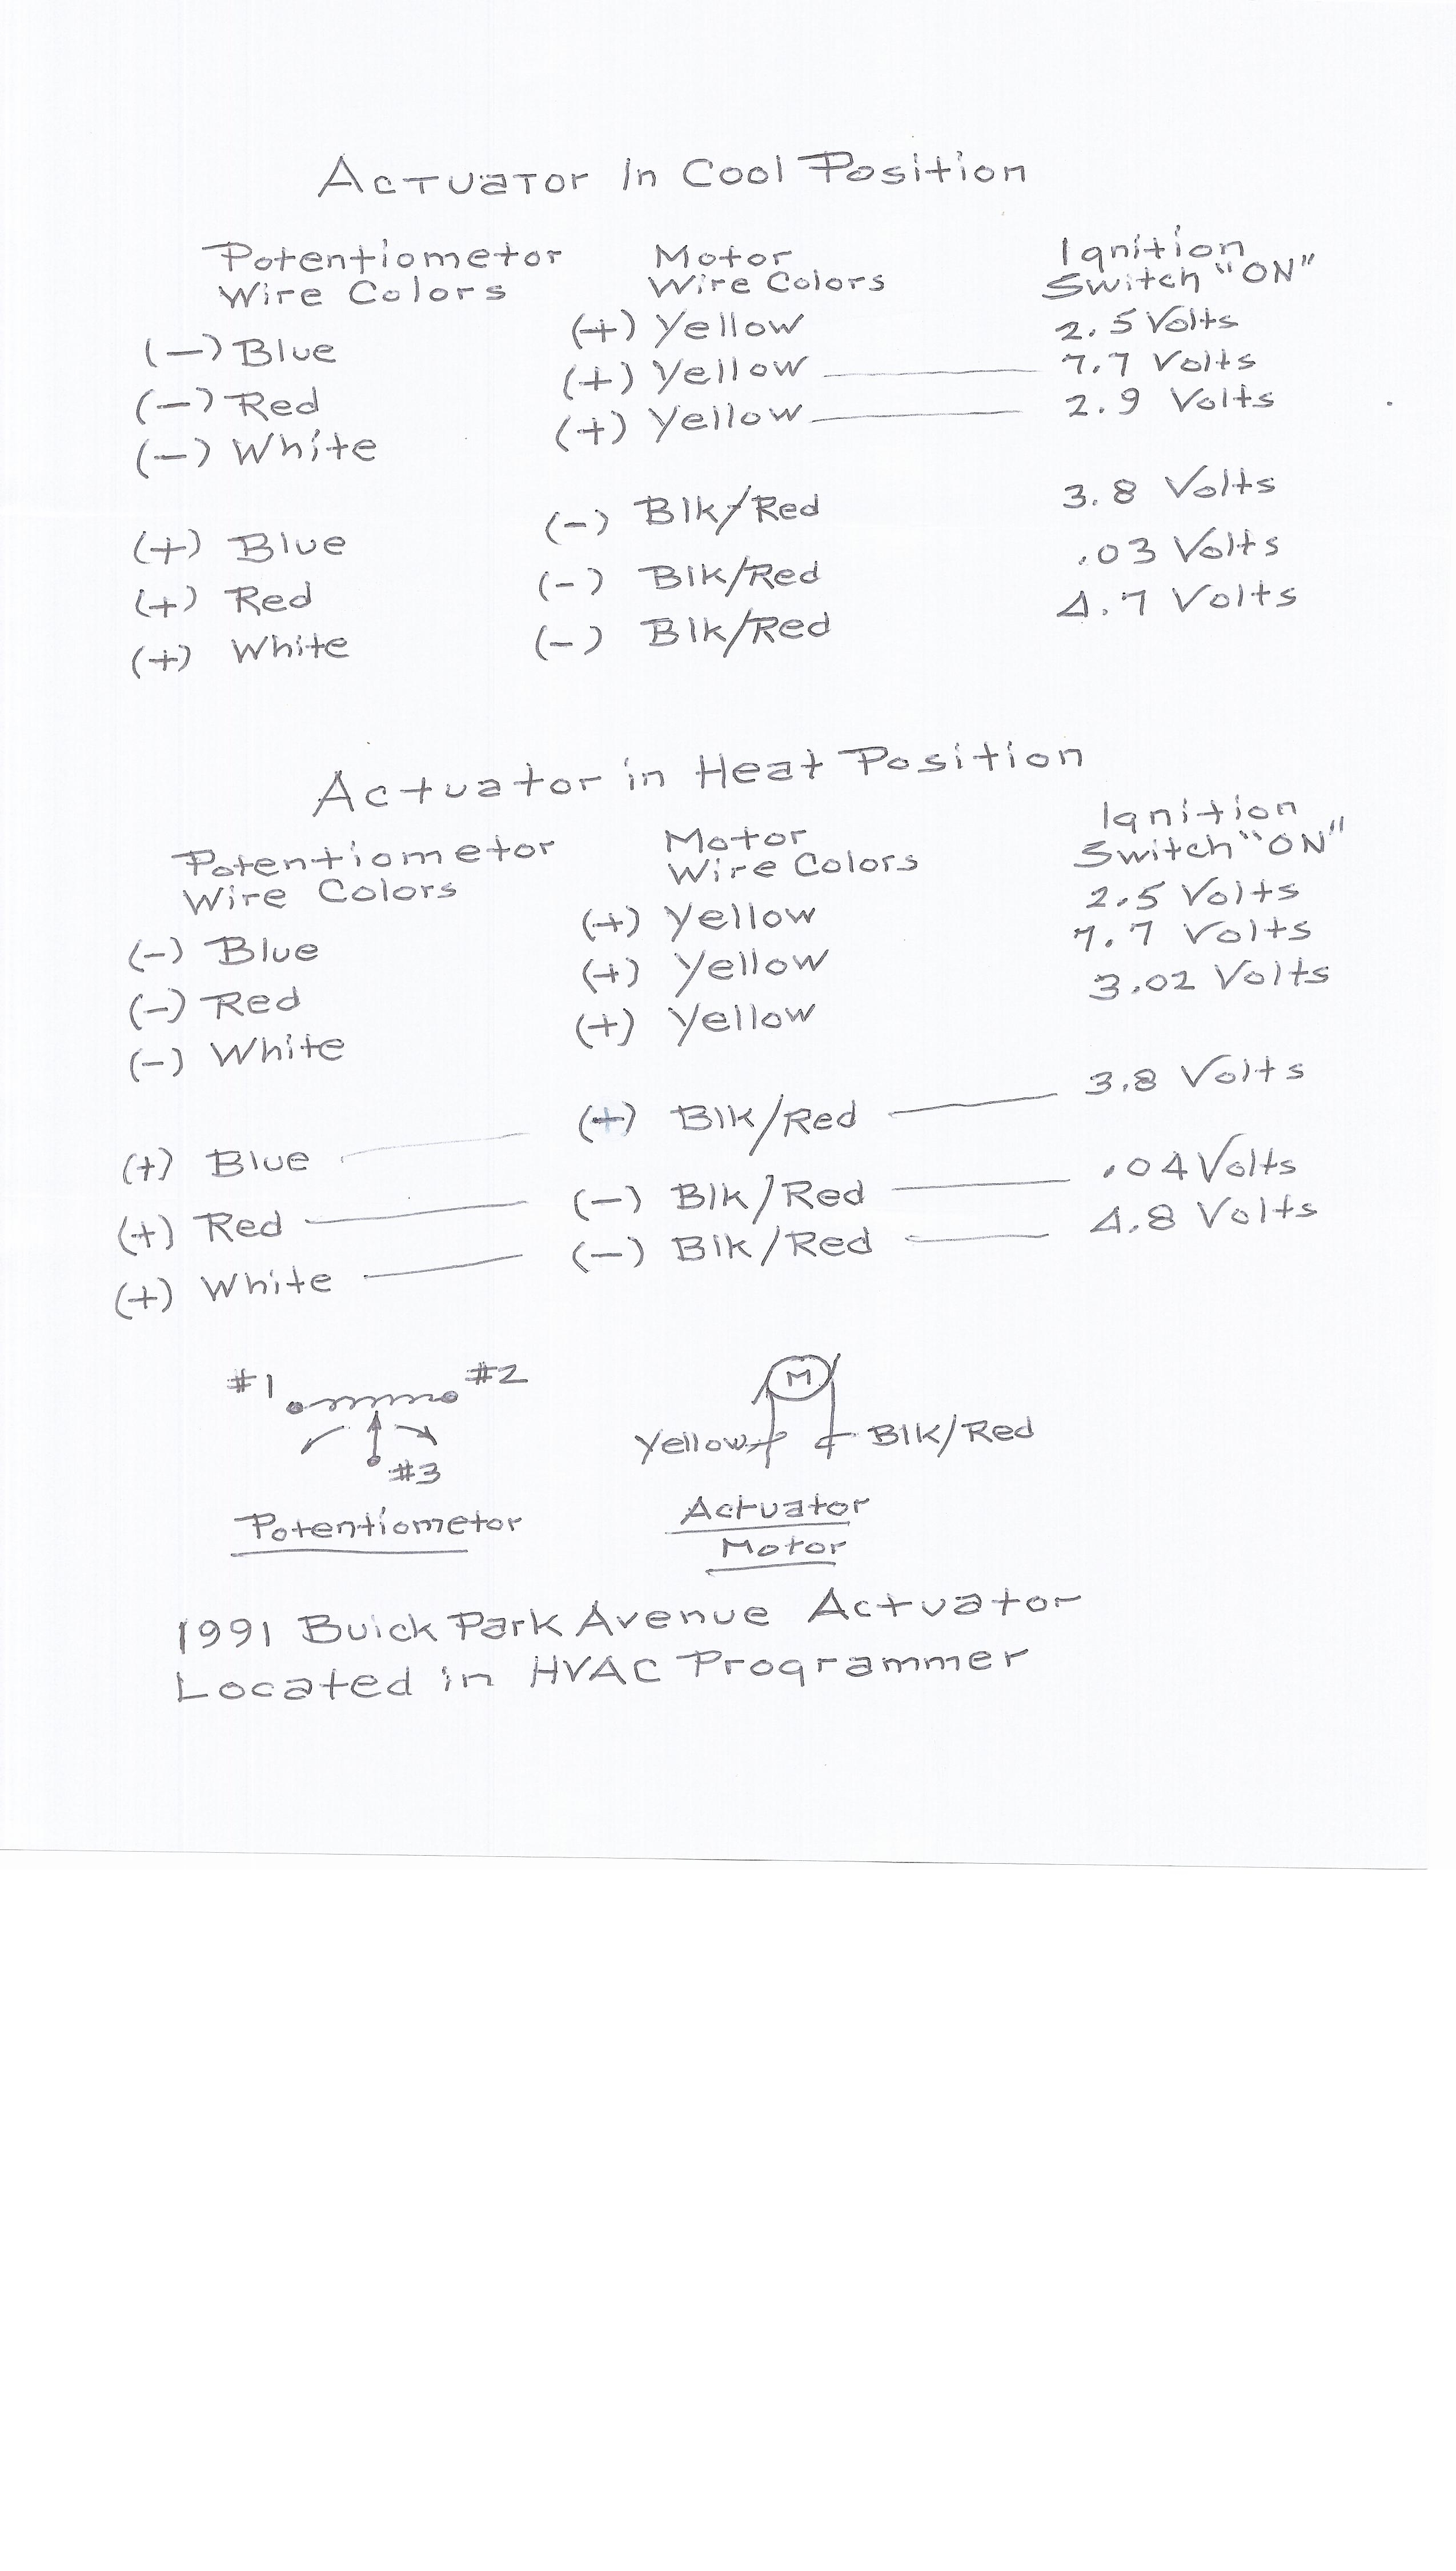 Actuator In Cool Position
Potentiometor Motor Ignition
Wire Colors Wire Colors Switch "ON"
(-) Blue (+) Yellow 2.5 Volts
(-) Red (+) Yellow 7.7 Volts
(-) White (+) Yellow 2.9 Volts
(+) Blue (-) Blk/Red 3.8 Volts
(+) Red (-) Blk/Red .03 Volts
(+) White (-) Blk/Red 4.7 Volts
Actuator in Heat Position
Potentiometor Motor Ignition
Wire Colors Wire Colors Switch "ON"
(-) Blue (+) Yellow 2.5 Volts
(-) Red (+) Yellow 7.7 Volts
(-) White (+) Yellow 3.02 Volts
(+) Blue (+) Blk/Red 3.8 Volts
(+) Red (-) Blk/Red .04 Volts
(+) White (-) Blk/Red 4.8 Volts
#1 #2 M
#3 Yellow Blk/Red
Potentiometor Actuator
Motor
1991 Buick Park Avenue Actuator
Located in HVAC Programmer